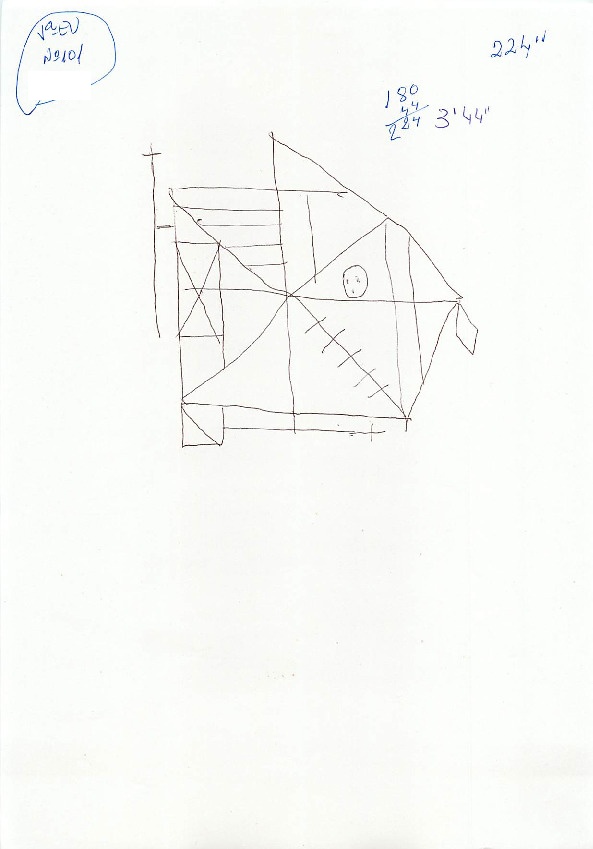 1ª EV
Nº101
224"
180
44
224
3'44"